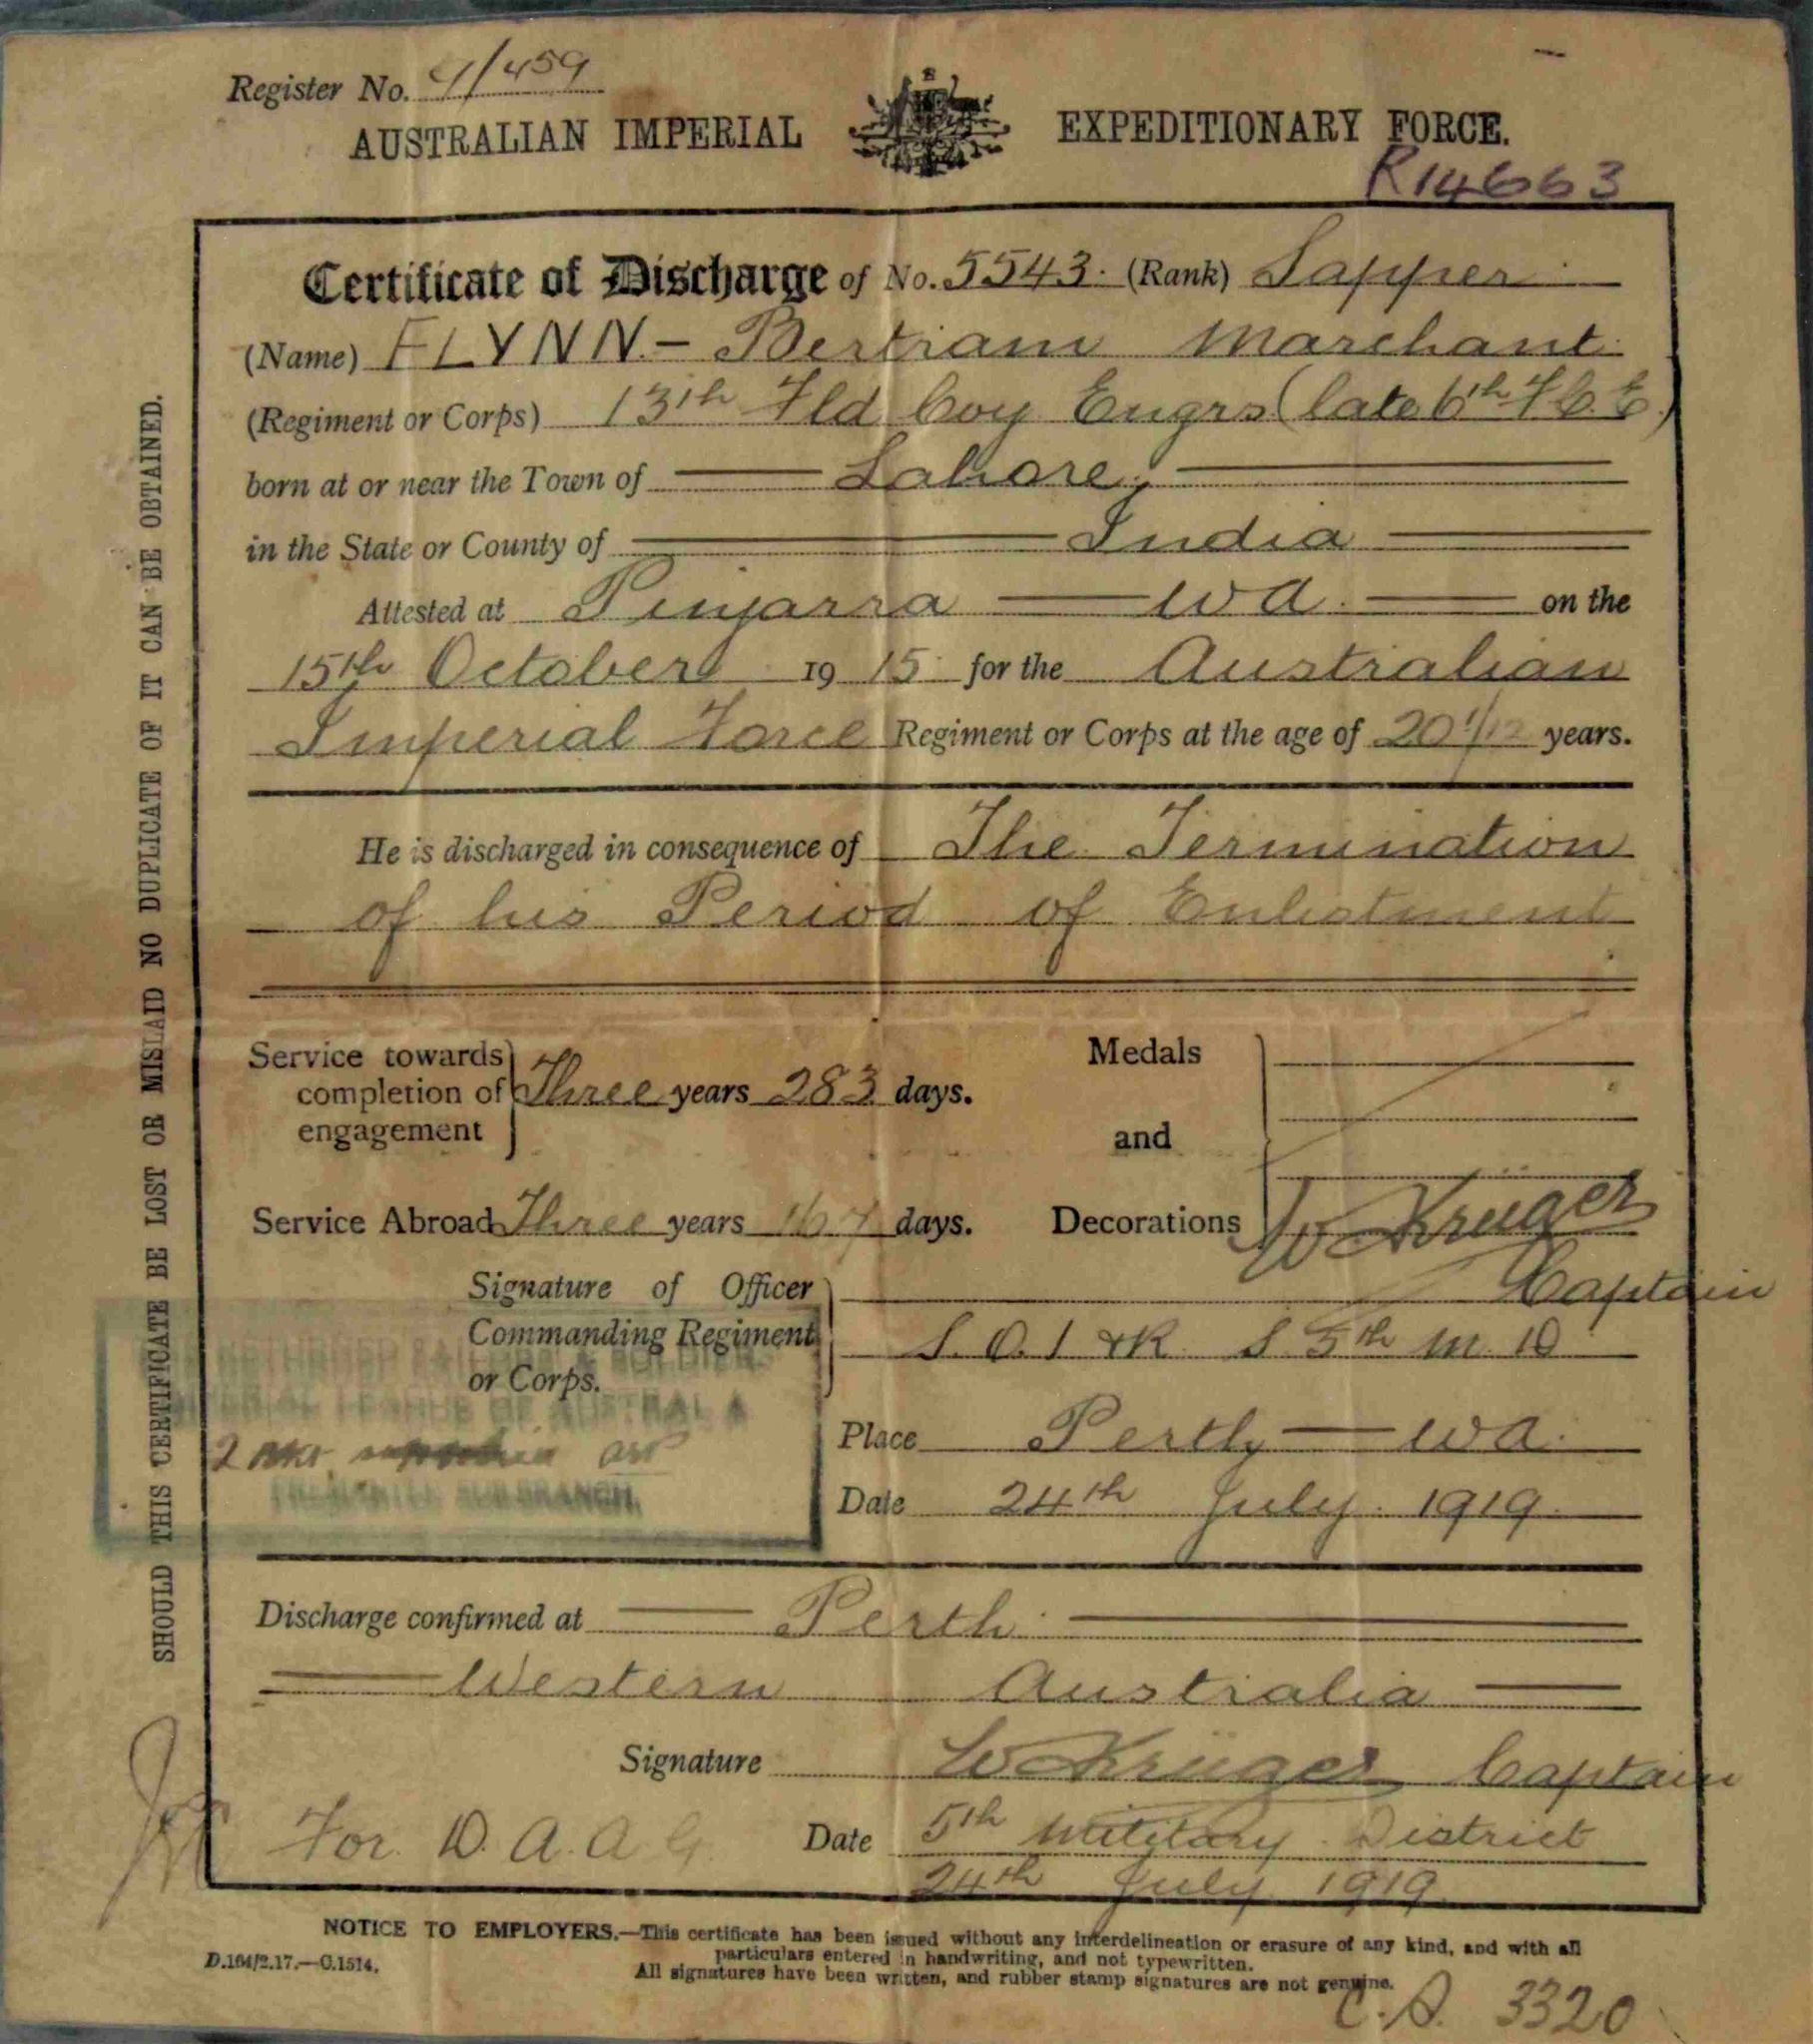 Register No. 4/459
AUSTRALIAN IMPERIAL EXPEDITIONARY FORCE.
R14663
Certificate of Discharge of No. 5543. (Rank) Sapper
(Name) FLYNN - Bertram Marchant
(Regiment or Corps) 13th Fld Coy Engrs (late 6th F.C.E.)
born at or near the Town of Lahore,
in the State or County of India
Attested at Pinjarra W A. on the
15th October 19 15 for the Australian
Imperial Force Regiment or Corps at the age of 20 1/12 years.
He is discharged in consequence of The Termination
of his Period of Enlistment
Service towards completion of engagement Three years 283 days.
Medals and Decorations
Service Abroad Three years 167 days.
W Kruger
Captain
Signature of Officer
Commanding Regiment
or Corps.
S.O. I & R. S 5th M. D
RETURNED SAILORS & SOLDIERS
IMPERIAL LEAGUE OF AUSTRALIA
FREMANTLE SUB-BRANCH.
Place Perth - W A.
Date 24th July. 1919.
Discharge confirmed at Perth
Western Australia
Signature W Kruger Captain
For. D. A. A G. Date 5th Military District
24th July 1919
NOTICE TO EMPLOYERS.—This certificate has been issued without any interdelineation or erasure of any kind, and with all
particulars entered in handwriting, and not typewritten.
All signatures have been written, and rubber stamp signatures are not genuine.
D.164/2.17.—C.1514.
C.A. 3320
SHOULD THIS CERTIFICATE BE LOST OR MISLAID NO DUPLICATE OF IT CAN BE OBTAINED.